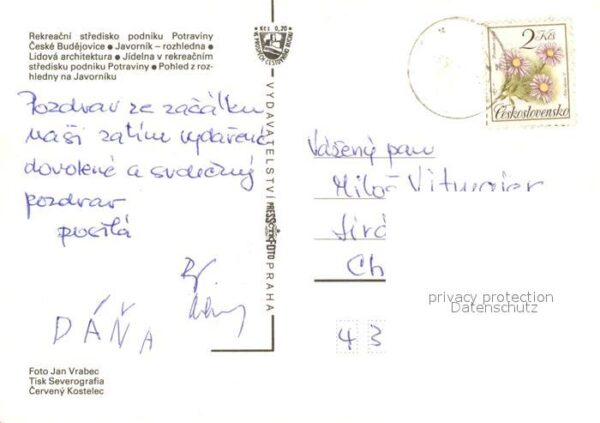 Rekreační středisko podniku Potraviny
České Budějovice ● Javorník – rozhledna ●
Lidová architektura ● Jídelna v rekreačním
středisku podniku Potraviny ● Pohled z roz-
hledny na Javorníku
Pozdrav ze začátku
naší zatím vydařené
dovolené a srdečný
pozdrav
posílá
DÁŇA
Foto Jan Vrabec
Tisk Severografia
Červený Kostelec
Kčs 0,20
VYDAVATELSTVÍ PRESSFOTO PRAHA
2 Kčs
Československo
Vážený pan
Miloš
Ch
43
privacy protection
Datenschutz